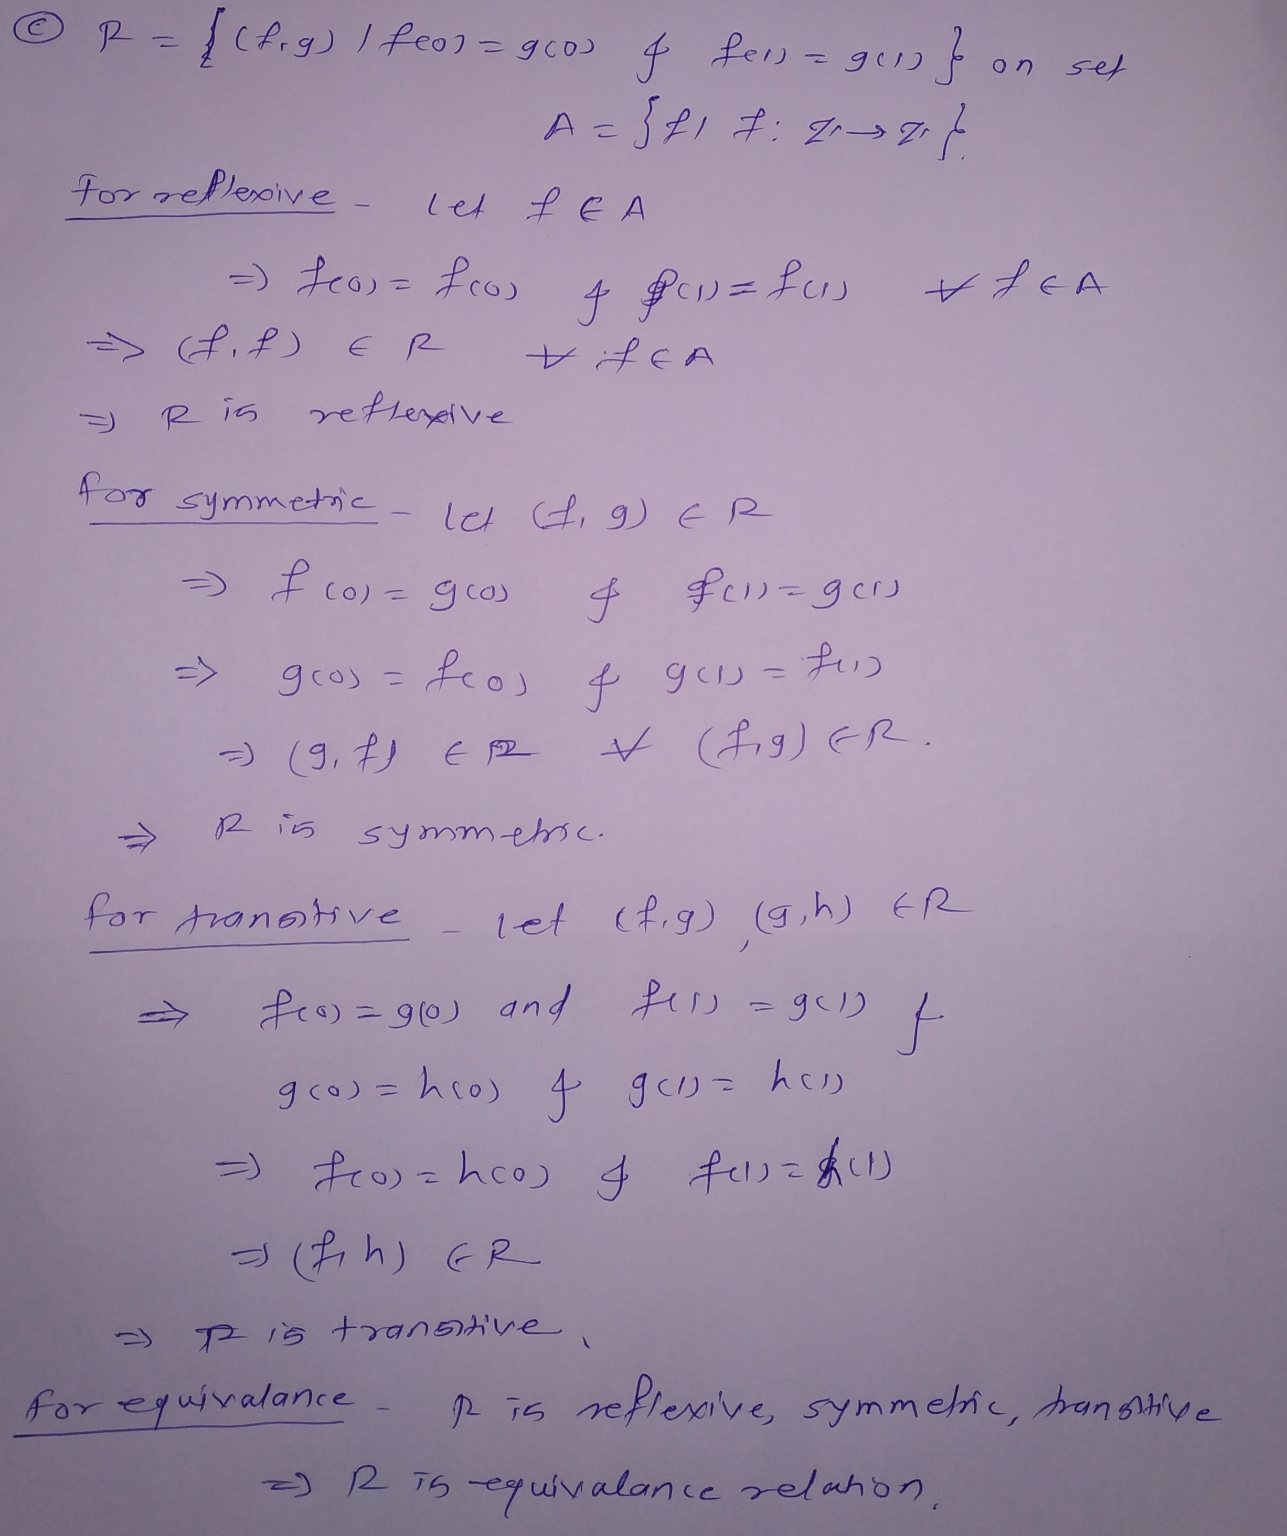 ⓒ R = { (f,g) / f(0) = g(0) & f(1) = g(1) } on set
A = { f / f: Z → Z }.
for reflexive - let f ∈ A
=> f(0) = f(0) & f(1) = f(1) ∀ f ∈ A
=> (f,f) ∈ R ∀ f ∈ A
=> R is reflexive
for symmetric - let (f,g) ∈ R
=> f(0) = g(0) & f(1) = g(1)
=> g(0) = f(0) & g(1) = f(1)
=> (g,f) ∈ R ∀ (f,g) ∈ R.
=> R is symmetric.
for transitive - let (f,g), (g,h) ∈ R
=> f(0) = g(0) and f(1) = g(1) &
g(0) = h(0) & g(1) = h(1)
=> f(0) = h(0) & f(1) = h(1)
=> (f,h) ∈ R
=> R is transitive.
for equivalance - R is reflexive, symmetric, transitive
=> R is equivalance relation.